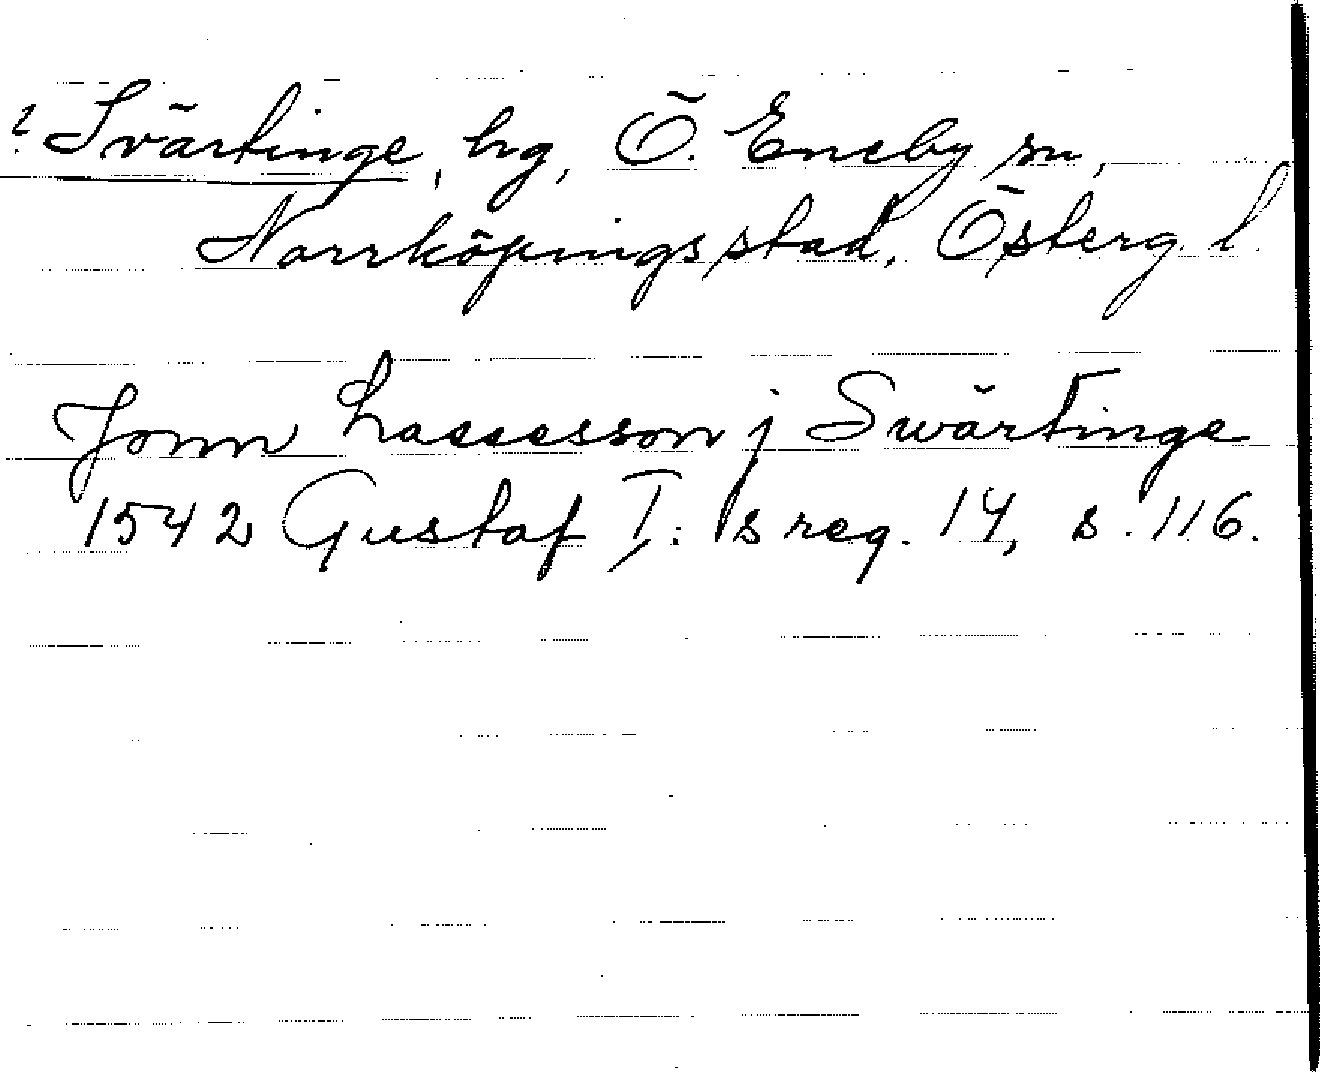 ? Svärtinge, hg, Ö. Eneby sn,
Norrköpings stad, Österg. l.
Jonn Lassesson j Swärtinge
1542 Gustaf I:s reg. 14, s. 116.